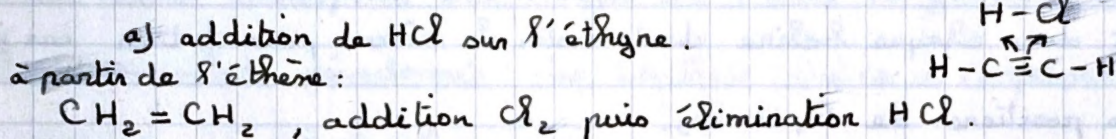 a) addition de HCl sur l'éthyne.
H-Cl
à partir de l'éthène:
H-C≡C-H
CH₂=CH₂, addition Cl₂ puis élimination HCl